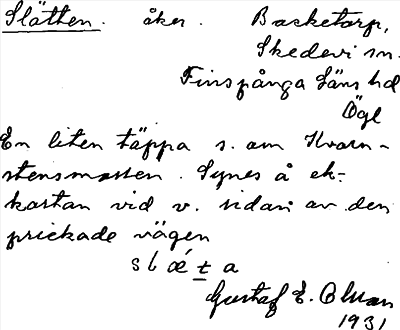 Slätten. åker. Basketorp,
Skedevi sn.
Finspånga Läns hd
Ögl
En liten täppa s. om Kvarn-
stensmossen. Synes å ek.
kartan vid v. sidan av den
prickade vägen
slǽta
Gustaf E. Olsson
1931